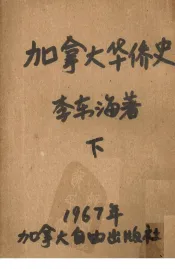 加拿大华侨史
李东海著
下
1967年
加拿大自由出版社